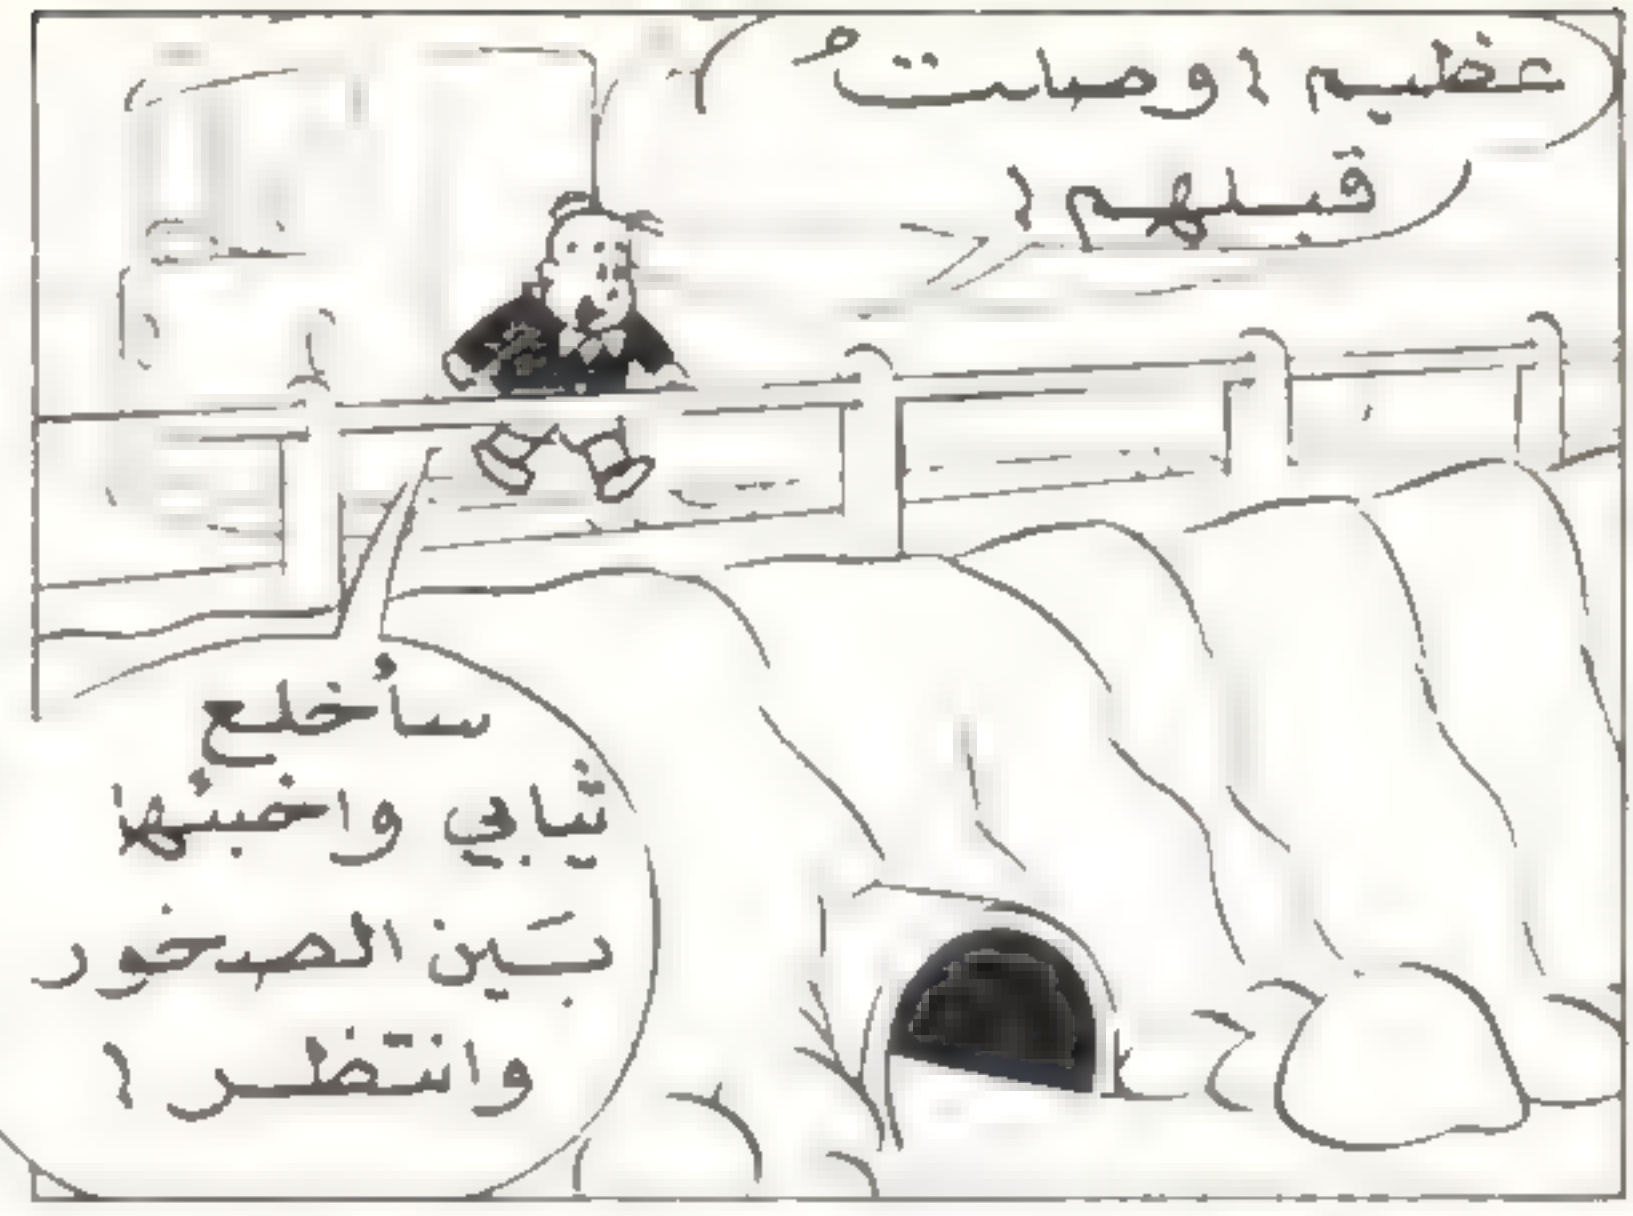 عظيم ! وصلتُ
قبلهم !
سأخلع
ثيابي واخبئها
بَين الصخور
وانتظر !